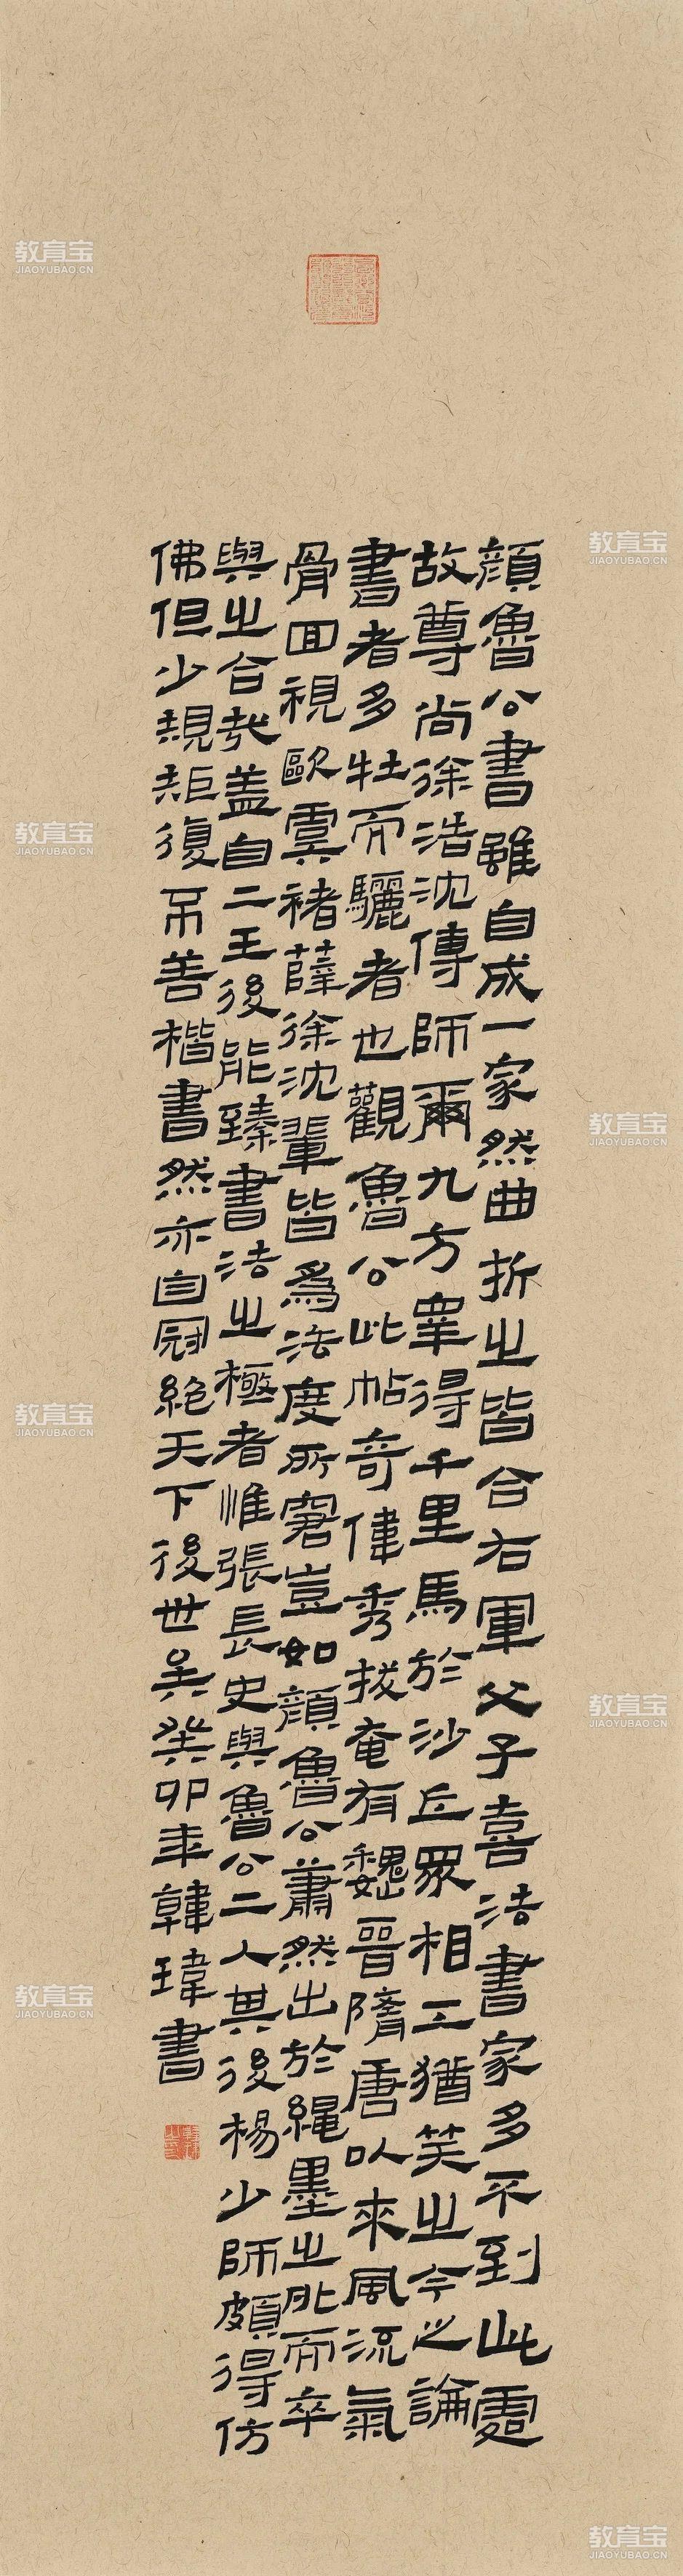 顏魯公書雖自成一家然曲折之皆合右軍父子喜法書家多不到此處
故尊尚徐浩沈傳師爾九方皋得千里馬於沙丘眾相工猶笑之今之論
書者多牡而驪者也觀魯公此帖奇偉秀拔奄有魏晉隋唐以來風流氣
骨囬視歐虞褚薛徐沈輩皆爲法度所窘豈如顏魯公蕭然出於繩墨之外而卒
與之合哉盖自二王後能臻書法之極者惟張長史與魯公二人其後楊少師頗得仿
佛但少規矩復不善楷書然亦自冠絕天下後世矣癸卯年韓瑋書
教育宝
JIAOYUBAO.CN
教育宝
JIAOYUBAO.CN
教育宝
JIAOYUBAO.CN
教育宝
JIAOYUBAO.CN
教育宝
JIAOYUBAO.CN
教育宝
JIAOYUBAO.CN
教育宝
JIAOYUBAO.CN
教育宝
JIAOYUBAO.CN